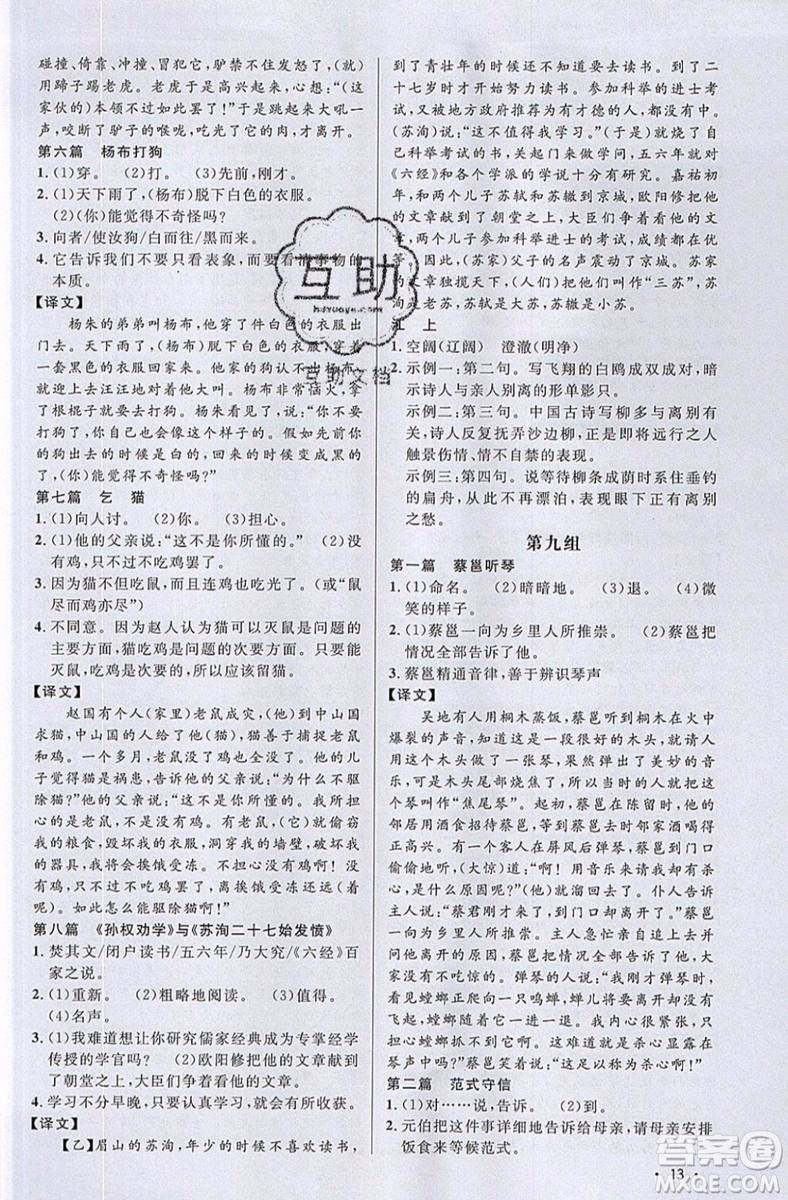 碰撞、倚靠、冲撞、冒犯它，驴禁不住发怒了，(就)
用蹄子踢老虎。老虎于是高兴起来，心想：“(这
家伙的)本领不过如此罢了！”于是跳起来大吼一
声，咬断了驴子的喉咙，吃光了它的肉，才离开。
第六篇　杨布打狗
1. (1)穿。　(2)打。　(3)先前，刚才。
2. (1)天下雨了，(杨布)脱下白色的衣服。
(2)(你)能觉得不奇怪吗？
3. 向者/使汝狗/白而往/黑而来。
4. 它告诉我们不要只看表象，而要看清事物的
本质。
【译文】
杨朱的弟弟叫杨布，他穿了件白色的衣服出
门去。天下雨了，(杨布)脱下白色的衣服，穿着
一套黑色的衣服回家。他家的狗没认出是杨布，
就迎上前汪汪地对着他大叫。杨布非常恼火，拿
了根棍子就要去打狗。杨朱看见了，说：“你不要
打狗，你自己也会是这个样子的。假如刚才你的
狗出去的时候是白的，回来的时候变成黑的，你
(能)觉得不奇怪吗？”
第七篇　乞　猫
1. (1)向人讨。　(2)你。　(3)担心。
2. (1)他的父亲说：“这不是你所懂的。”　(2)没
有鸡，只不过不吃鸡罢了。
3. 因为猫不但吃鼠，而且还吃鸡。(或“鼠
尽而鸡亦尽”)
4. 不同意。因为赵人认为猫可以灭鼠是问题的
主要方面，猫吃鸡是次要方面，只要能
灭鼠，吃鸡是次要的，所以应该留猫。
【译文】
赵国有个人(家里)老鼠成灾，(他)到中山国
求猫，中山国的人给了他(猫)，这猫善于捕捉老
鼠和鸡。一个多月，老鼠没了鸡也没有了。他的儿
子觉得猫是祸患，告诉他的父亲说：“为什么不驱
除猫？”他的父亲说：“这不是你所懂的。我担
忧的是有老鼠，不是没有鸡。有了老鼠，就会偷窃
我的粮食，毁坏我的衣服，洞穿我的墙壁，破坏我
的器具，我们将会挨饿受冻。不是比没有鸡更有
害吗？没有鸡，只不过不吃鸡罢了，离挨饿受冻还
很远，为什么要驱除猫！”
第八篇　《孙权劝学》与《苏洵二十七始发愤》
1. 焚其文/闭户读书/五六年/乃大究/《六经》百
家之说。
2. (1)重新。　(2)粗略地阅读。　(3)值得。
(4)名声。
3. (1)我难道想让你研究儒家经典成为专掌经学
传授的学官吗？　(2)欧阳修把他的文章献到
了朝堂之上，大臣们争着读他的文章。
4. 学习不分早晚，只要认真学习，就会有所收获。
【译文】
【乙】眉山的苏洵，年少的时候不喜欢读书，
到了青壮年的时候还不知道要读书。到了二
十七岁时才开始努力读书。参加科举的进士考
试，又被地方政府推荐为有才德的人，都没有中。
(苏洵)说：“这不值得我学习。”(于是)就烧了自
己科举考试的文章。关起门来读书，五六年才对
《六经》和各个学派的学说十分有研究。嘉祐初
年，和两个儿子苏轼、苏辙到京城，欧阳修把他
的文章献到了朝堂之上，大臣们争着读他的文
章。他的两个儿子参加科举进士考试，也中了
高等。于是，(苏家)父子的名声震动了京城。苏
家的文章独揽天下，(人们)一起称他们“三苏”，苏
洵是老苏，苏轼是大苏，苏辙是小苏。
江　上
1. 空阔(辽阔)　澄澈(明净)
2. 示例一：第二句。写飞翔的白鸥成双成对，暗
暗示诗人与亲人别离的形单影只。
示例二：第三句。中国古诗写柳多与离别有
关，诗人反复抚弄沙边柳，是想起离别之人
触景伤情、情不自禁的表现。
示例三：第四句。说等待柳条成荫时系垂钓
的扁舟，从此不再漂泊，表现出不再有离别
之愁。
第九组
第一篇　蔡邕听琴
1. (1)命名。　(2)暗暗地。　(3)退。　(4)微
笑的样子。
2. (1)蔡邕一向为乡里人所推崇。　(2)蔡邕把
情况全部告诉了他。
3. 蔡邕精通音律，善于辨识琴声
【译文】
吴地有人用桐木蒸饭，蔡邕听到桐木在火中
爆裂的声音，知道这是一块很好的木头，因此请
求把这块木头做了一张琴，果然弹出了美妙的
音色，可是木头尾部烧焦了，所以当时的人把这
个琴叫作“焦尾琴”。起初，蔡邕在陈留时，他的
邻居用酒食招待蔡邕，等他去了邻居家酒喝得
正高兴，有个客人在屏风后弹琴，蔡邕到门口
偷偷地听琴声，(大惊)道：“啊！用音乐来请我却有杀
心，是什么原因呢？”就溜回去了。仆人告诉
主人说：“蔡君刚才来了，到了门口却离开了。”蔡
邕一向为乡里人所推崇。主人急忙亲自追上并
问他离开的原因，蔡邕把情况全部告诉了他，大
家都(对此)感到惊讶。弹琴的人说：“我刚才弹
琴的时候，看见螳螂爬向一只鸣蝉，蝉儿将要离开
却还没有起飞，螳螂跟着它一进一退。我内心很紧张，只
担心螳螂丧失了机会，这难道就是杀心显露在
琴声中来了吗？”蔡邕笑着说：“这足以称为杀心了。”
第二篇　范式守信
1. (1)对……说，告诉。　(2)到。　(3)判断。
2. 元伯把这件事详细地告诉了母亲，请母亲安排
饭食来等候范式。
互助
hdzuoye.com
互助文档
答案圈
MXQE.COM
· 13 ·